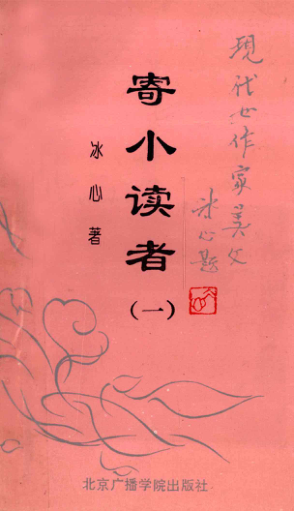 现代女作家美文
冰心题
寄小读者
（一）
冰心著
北京广播学院出版社